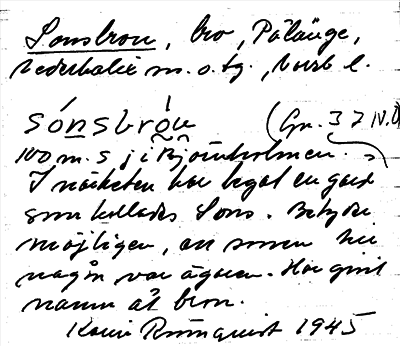 Sonsbron, bro, Pålänge,
Nederkalix m. o. tg., Norrb l.
sónsbròn (Gn. 3 7 IV.
100 m. S j i Björnholmen.
I närheten har legat en gård
som kallades Sons. Betyder
möjligen, en som hu
någon var ägaren. Har givit
namn åt bron.
Karin Rönnquist 1945